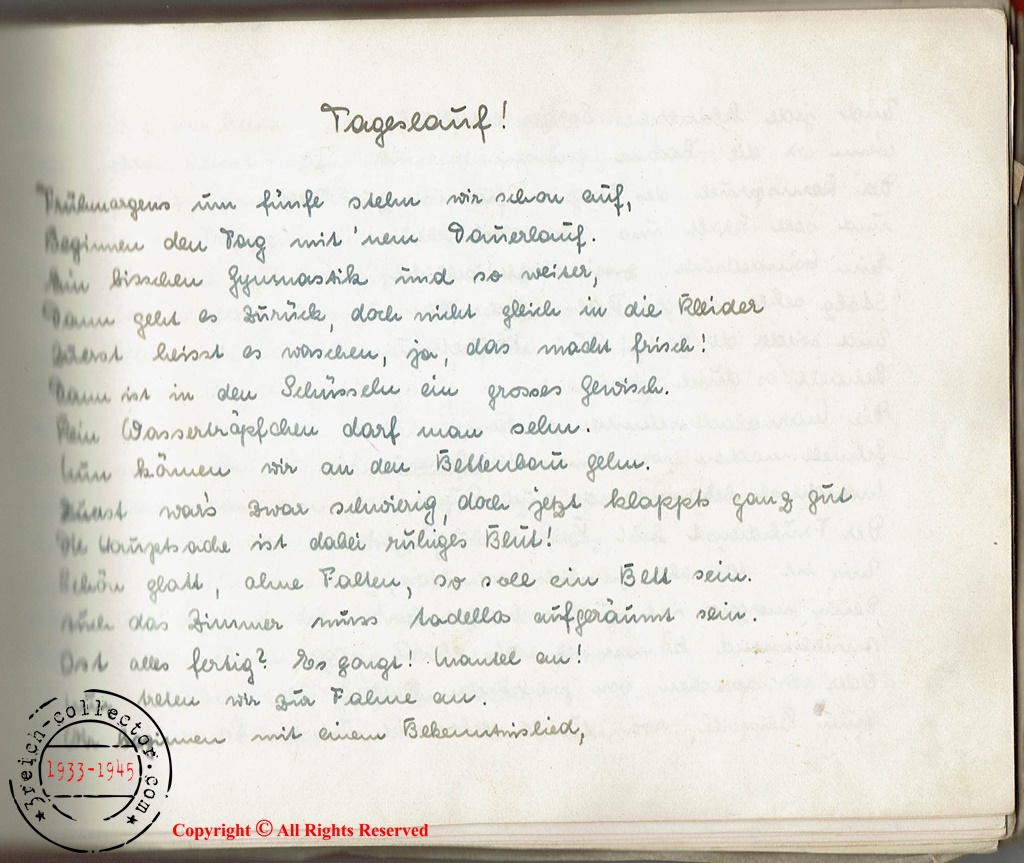 Tageslauf!
Frühmorgens um fünfe stehn wir schon auf,
Beginnen den Tag mit 'nem Dauerlauf.
Ein bisschen Gymnastik und so weiter,
Dann geht es zurück, doch nicht gleich in die Kleider
Zuerst heisst es waschen, ja, das macht frisch!
Dann ist in den Schüsseln ein grosses Gewisch.
Kein Wassertröpfchen darf man sehn.
Nun können wir an den Bettenbau gehn.
Zuerst war's zwar schwierig, doch jetzt klappts ganz gut
Die Hauptsache ist dabei ruhiges Blut!
Schön glatt, ohne Falten, so soll ein Bett sein.
Auch das Zimmer muss tadellos aufgeräumt sein.
Ist alles fertig? Es gongt! Mantel an!
treten wir zur Fahne an.
Wir beginnen mit einem Bekenntnislied,
3reich-collector.com
1933-1945
Copyright © All Rights Reserved